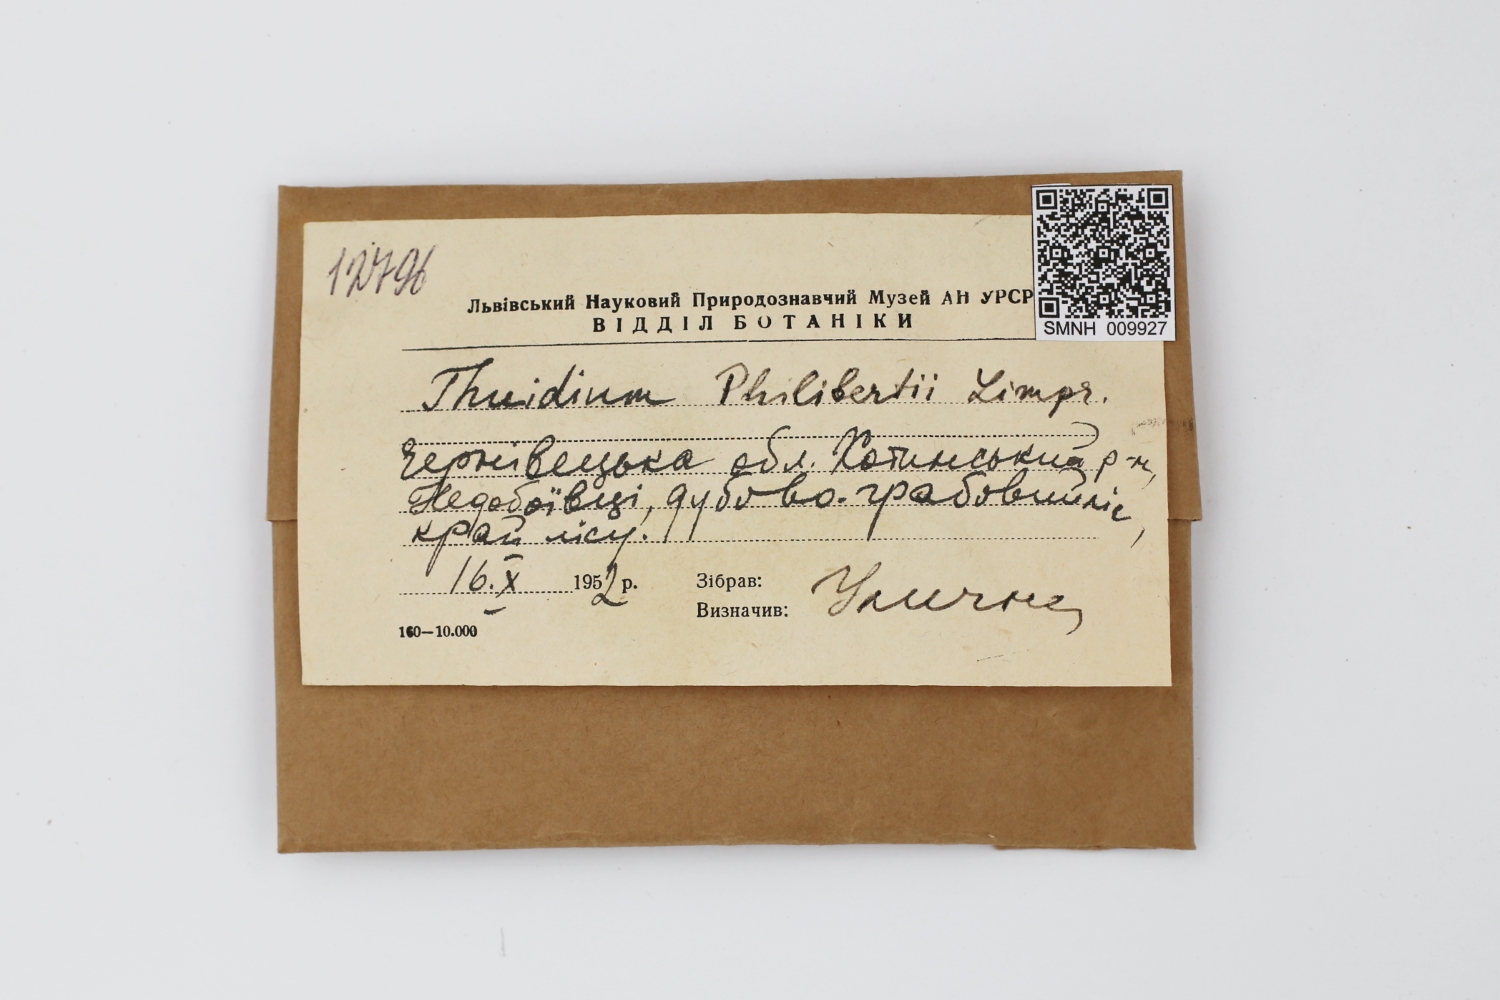 12796
Львівський Науковий Природознавчий Музей АН УРСР
ВІДДІЛ БОТАНІКИ
SMNH 009927
Thuidium Philibertii Limpr.
Чернівецька обл. Хотинський р-н,
Недобоївці, дубово-грабовий ліс,
край лісу.
16.X 1952 р.
Зібрав:
Визначив:
Улична
160—10.000